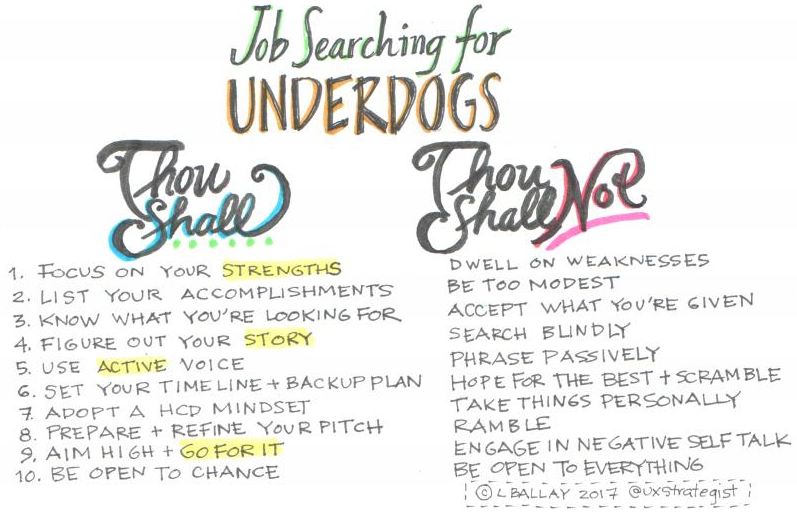 Job Searching for
UNDERDOGS
Thou
Shall
1. FOCUS ON YOUR STRENGTHS
2. LIST YOUR ACCOMPLISHMENTS
3. KNOW WHAT YOU'RE LOOKING FOR
4. FIGURE OUT YOUR STORY
5. USE ACTIVE VOICE
6. SET YOUR TIMELINE + BACKUP PLAN
7. ADOPT A HCD MINDSET
8. PREPARE + REFINE YOUR PITCH
9. AIM HIGH + GO FOR IT
10. BE OPEN TO CHANCE
Thou
Shall Not
DWELL ON WEAKNESSES
BE TOO MODEST
ACCEPT WHAT YOU'RE GIVEN
SEARCH BLINDLY
PHRASE PASSIVELY
HOPE FOR THE BEST + SCRAMBLE
TAKE THINGS PERSONALLY
RAMBLE
ENGAGE IN NEGATIVE SELF TALK
BE OPEN TO EVERYTHING
© LBALLAY 2017 @uxstrategist